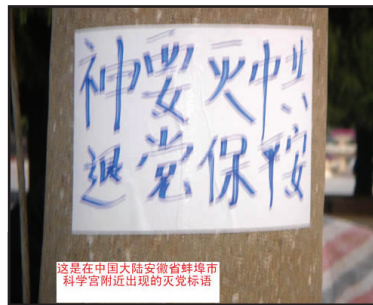 神要灭中共
退党保平安
这是在中国大陆安徽省蚌埠市
科学宫附近出现的灭党标语